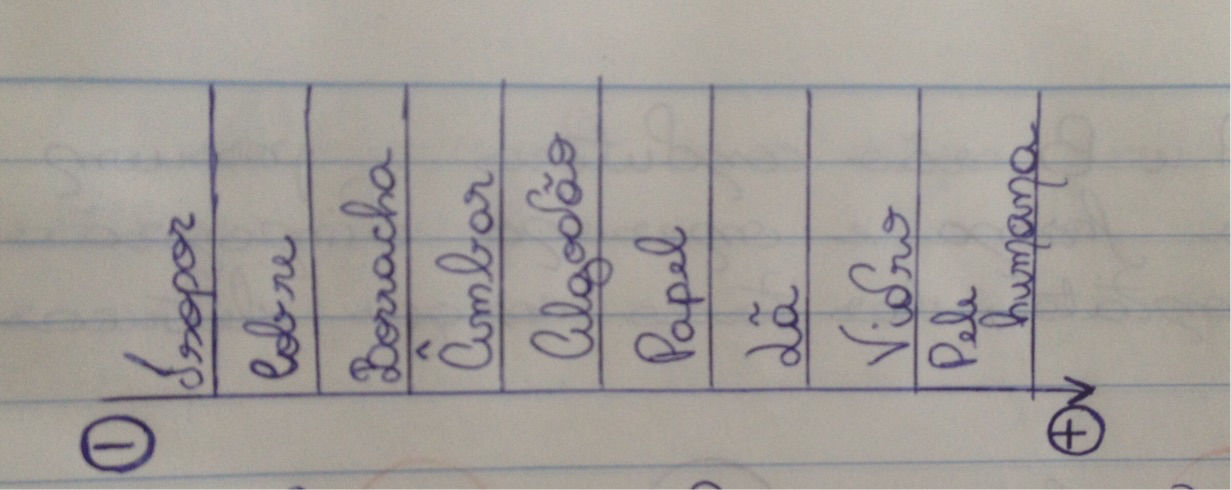 Isopor
Cobre
Borracha
Âmbar
Algodão
Papel
Lã
Vidro
Pele
humana
−
+